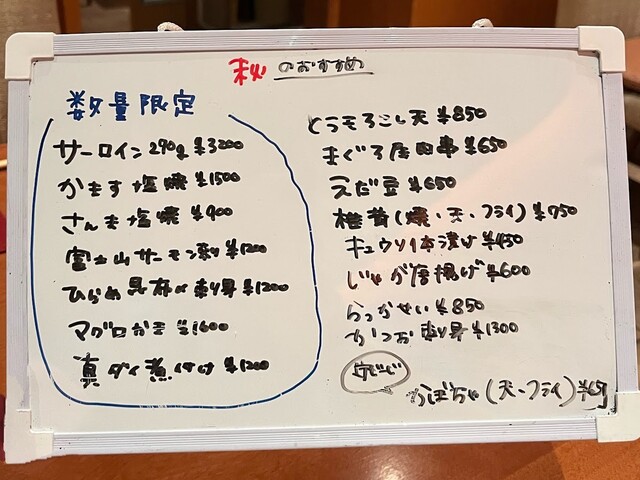 秘 のおすすめ
数量限定
サーロイン270g ¥3200
かます塩焼 ¥1500
さんま塩焼 ¥900
富士山サーモン刺 ¥1200
ひらめ昆布〆刺身 ¥1200
マグロかま ¥1600
真ダイ煮付け ¥1200
とうもろこし天 ¥850
まぐろ 串 ¥650
えだ豆 ¥650
椎茸(焼・天・フライ) ¥750
キュウリ1本漬け ¥450
じゃが唐揚げ ¥600
らっかせい ¥850
かつお刺身 ¥1300
かぼちゃ(天・フライ)